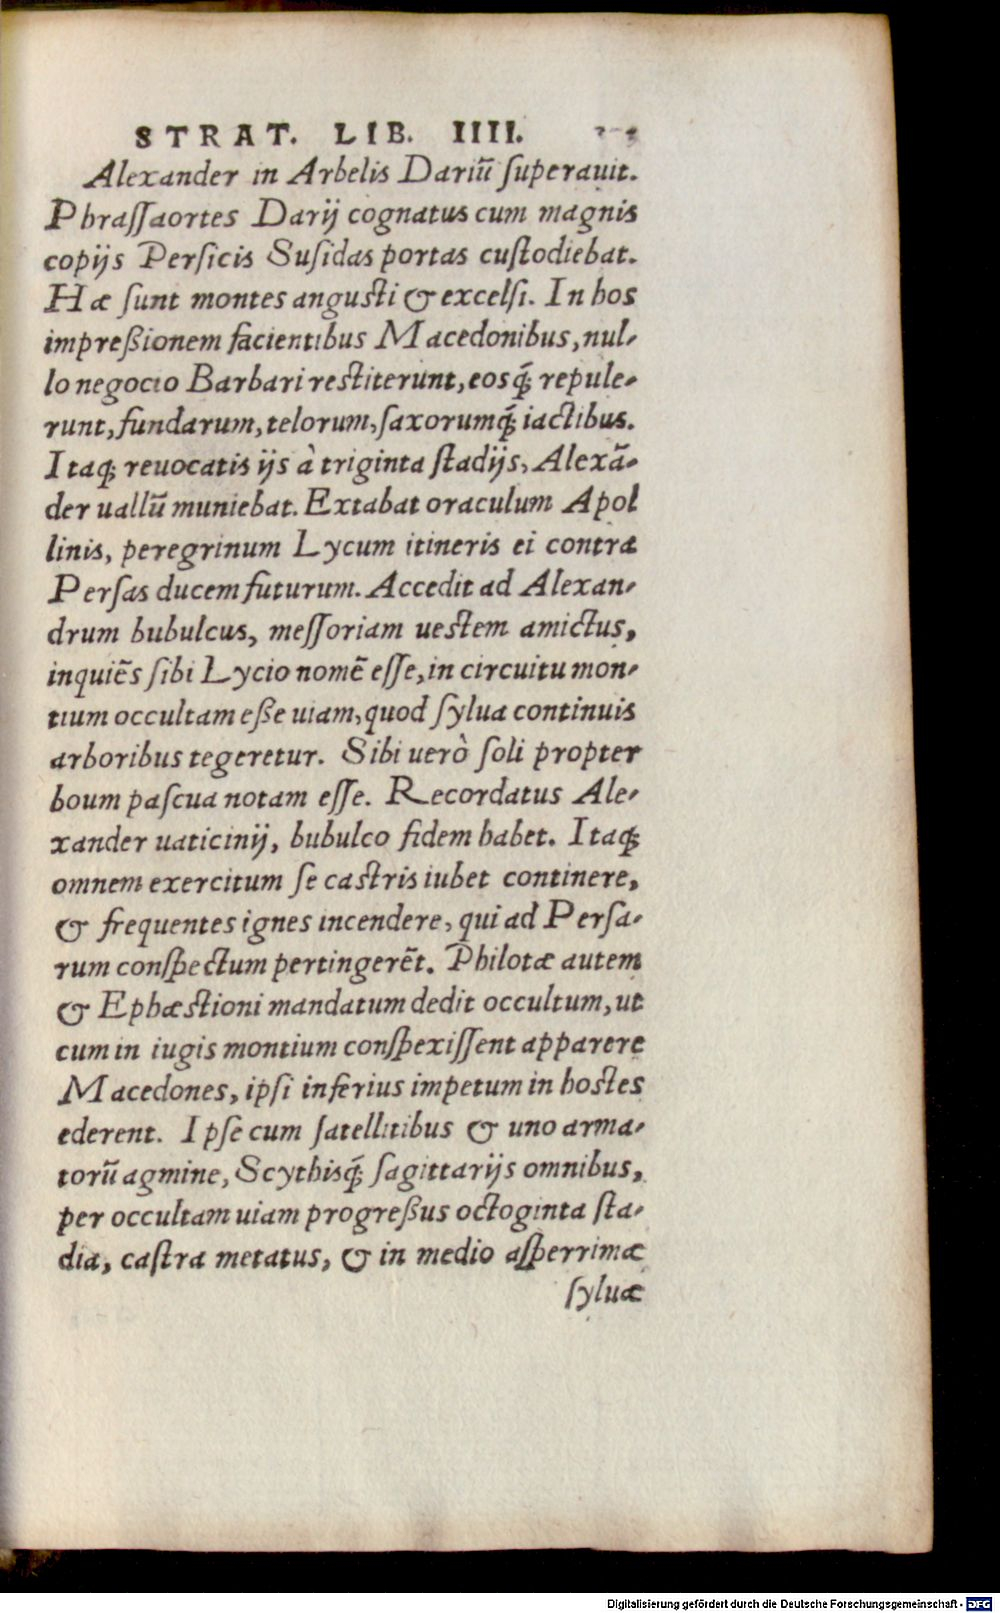 STRAT. LIB. IIII.
Alexander in Arbelis Dariũ ſuperauit.
Phraſſaortes Darij cognatus cum magnis
copijs Perſicis Suſidas portas cuſtodiebat.
Hæ ſunt montes anguſti & excelſi. In hos
impreßionem facientibus Macedonibus, nul-
lo negocio Barbari reſtiterunt, eosq́; repule-
runt, fundarum, telorum, ſaxorumq́; iactibus.
Itaq; reuocatis ijs à triginta ſtadijs, Alexã-
der uallũ muniebat. Extabat oraculum Apol
linis, peregrinum Lycum itineris ei contra
Perſas ducem futurum. Accedit ad Alexan-
drum bubulcus, meſſoriam ueſtem amictus,
inquiẽs ſibi Lycio nomẽ eſſe, in circuitu mon-
tium occultam eße uiam, quod ſylua continuis
arboribus tegeretur. Sibi uerò ſoli propter
boum paſcua notam eſſe. Recordatus Ale-
xander uaticinij, bubulco fidem habet. Itaq;
omnem exercitum ſe caſtris iubet continere,
& frequentes ignes incendere, qui ad Perſa-
rum conſpectum pertingerẽt. Philotæ autem
& Ephæſtioni mandatum dedit occultum, ut
cum in iugis montium conſpexiſſent apparere
Macedones, ipſi inferius impetum in hoſtes
ederent. Ipſe cum ſatellitibus & uno arma-
torũ agmine, Scythisq́; ſagittarijs omnibus,
per occultam uiam progreßus octoginta ſta-
dia, caſtra metatus, & in medio aſperrimæ
ſyluæ
Digitalisierung gefördert durch die Deutsche Forschungsgemeinschaft - DFG